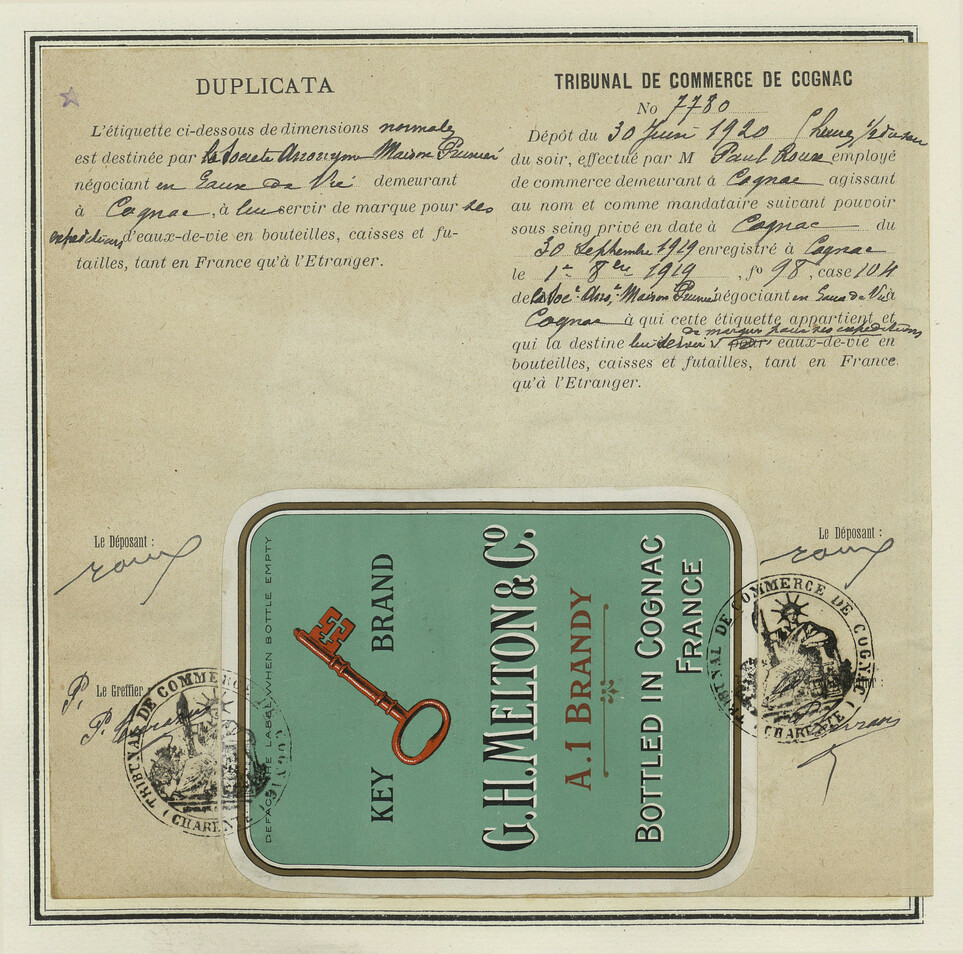 DUPLICATA
L'étiquette ci-dessous de dimensions normales
est destinée par la Société Anonyme Maison Prunier
négociant en Eaux de Vie demeurant
à Cognac, à lui servir de marque pour ses
expéditions d'eaux-de-vie en bouteilles, caisses et fu-
tailles, tant en France qu'à l'Etranger.
TRIBUNAL DE COMMERCE DE COGNAC
No 7780
Dépôt du 30 Juin 1920
du soir, effectué par M Paul Roux employé
de commerce demeurant à Cognac agissant
au nom et comme mandataire suivant pouvoir
sous seing privé en date à Cognac du
30 Septembre 1919 enregistré à Cognac
le 1er 8bre 1919, fo 98, case 104
de la Socé. Ans. Maison Prunier négociant en Eaux de Vie à
Cognac à qui cette étiquette appartient et
qui la destine lui servir de marque pour ses expéditions eaux-de-vie en
bouteilles, caisses et futailles, tant en France
qu'à l'Etranger.
Le Déposant :
roux
Le Déposant :
roux
Le Greffier
P.
TRIBUNAL DE COMMERCE DE COGNAC
(CHARENTE)
TRIBUNAL DE COMMERCE DE COGNAC
(CHARENTE)
DEFACE THE LABEL WHEN BOTTLE EMPTY
KEY BRAND
G.H. MELTON & Co.
A.1 BRANDY
BOTTLED IN COGNAC
FRANCE